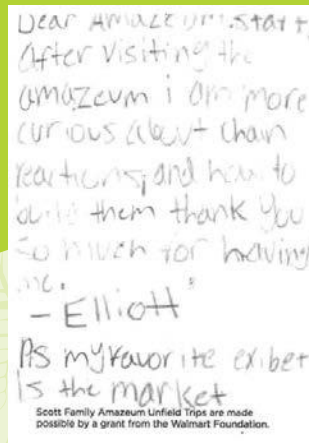 Dear Amazeum staff,
After visiting the
amazeum i am more
curious about chain
reactions, and how to
build them thank you
so much for having
me.
- Elliott
Ps my favorite exibet
is the market
Scott Family Amazeum Unfield Trips are made
possible by a grant from the Walmart Foundation.